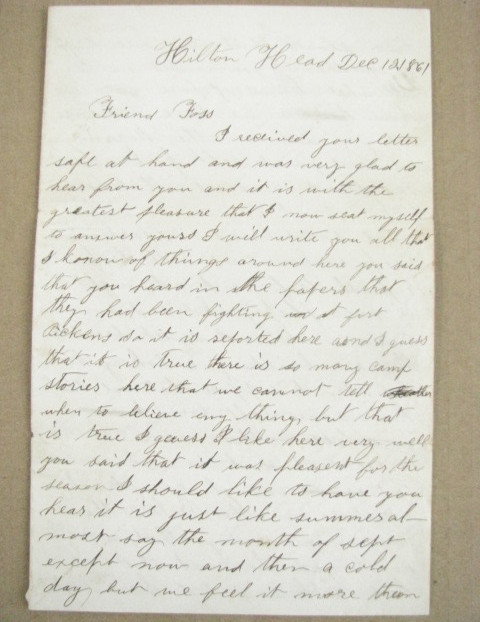 Hilton Head Dec 12 1861
Friend Foss
I received your letter
safe at hand and was very glad to
hear from you and it is with the
greatest pleasure that I now seat myself
to answer yours I will write you all that
I konow of things around here you said
that you heard in the papers that
they had been fighting at fort
Pickens so it is reported here and I guess
that it is true there is so many camp
stories here that we cannot tell
when to believe eny thing, but that
is true I geuess I like here very well
you said that it was pleasent for the
season I should like to have you
hear it is just like summer al-
most say the month of sept
except now and then a cold
day, but we feel it more than